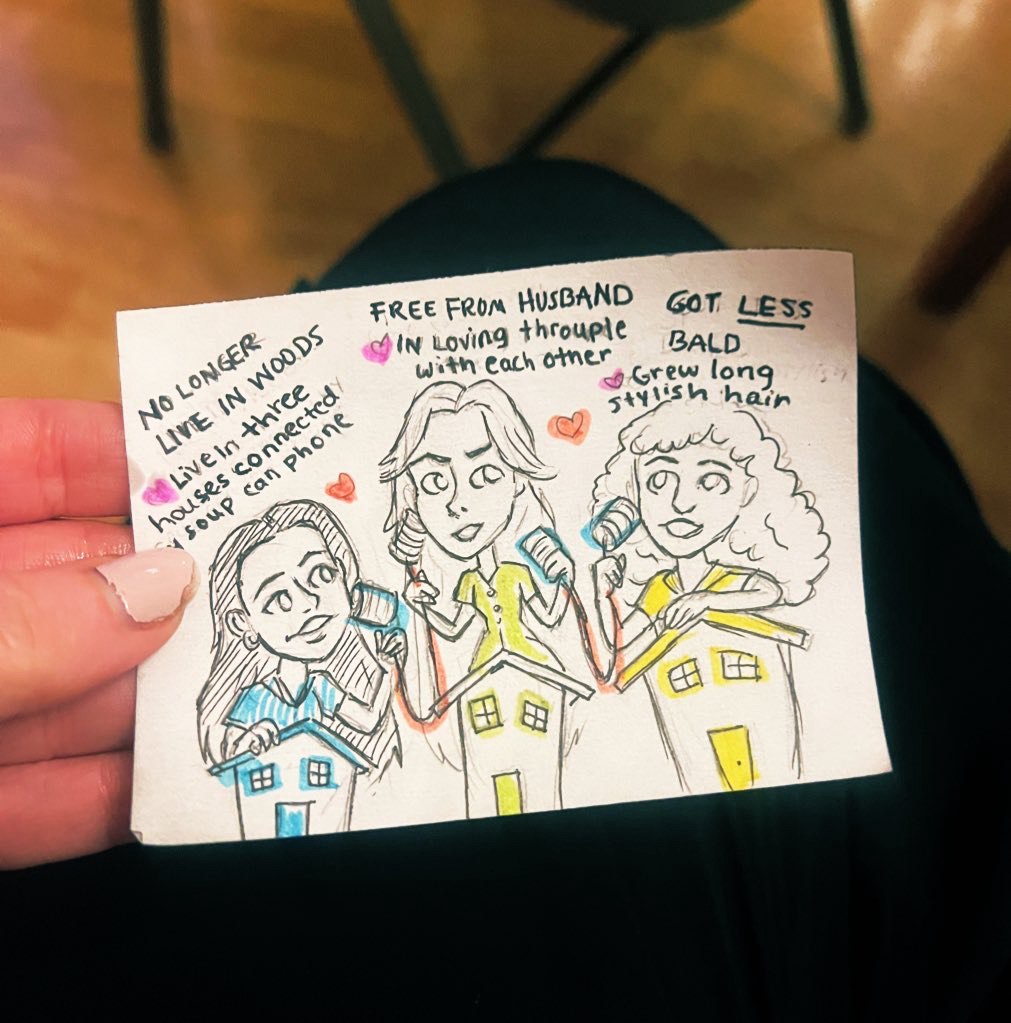 NO LONGER
LIVE IN WOODS
Live in three
houses connected
soup can phone
FREE FROM HUSBAND
IN Loving throuple
with each other
GOT LESS
BALD
Grew long
stylish hair